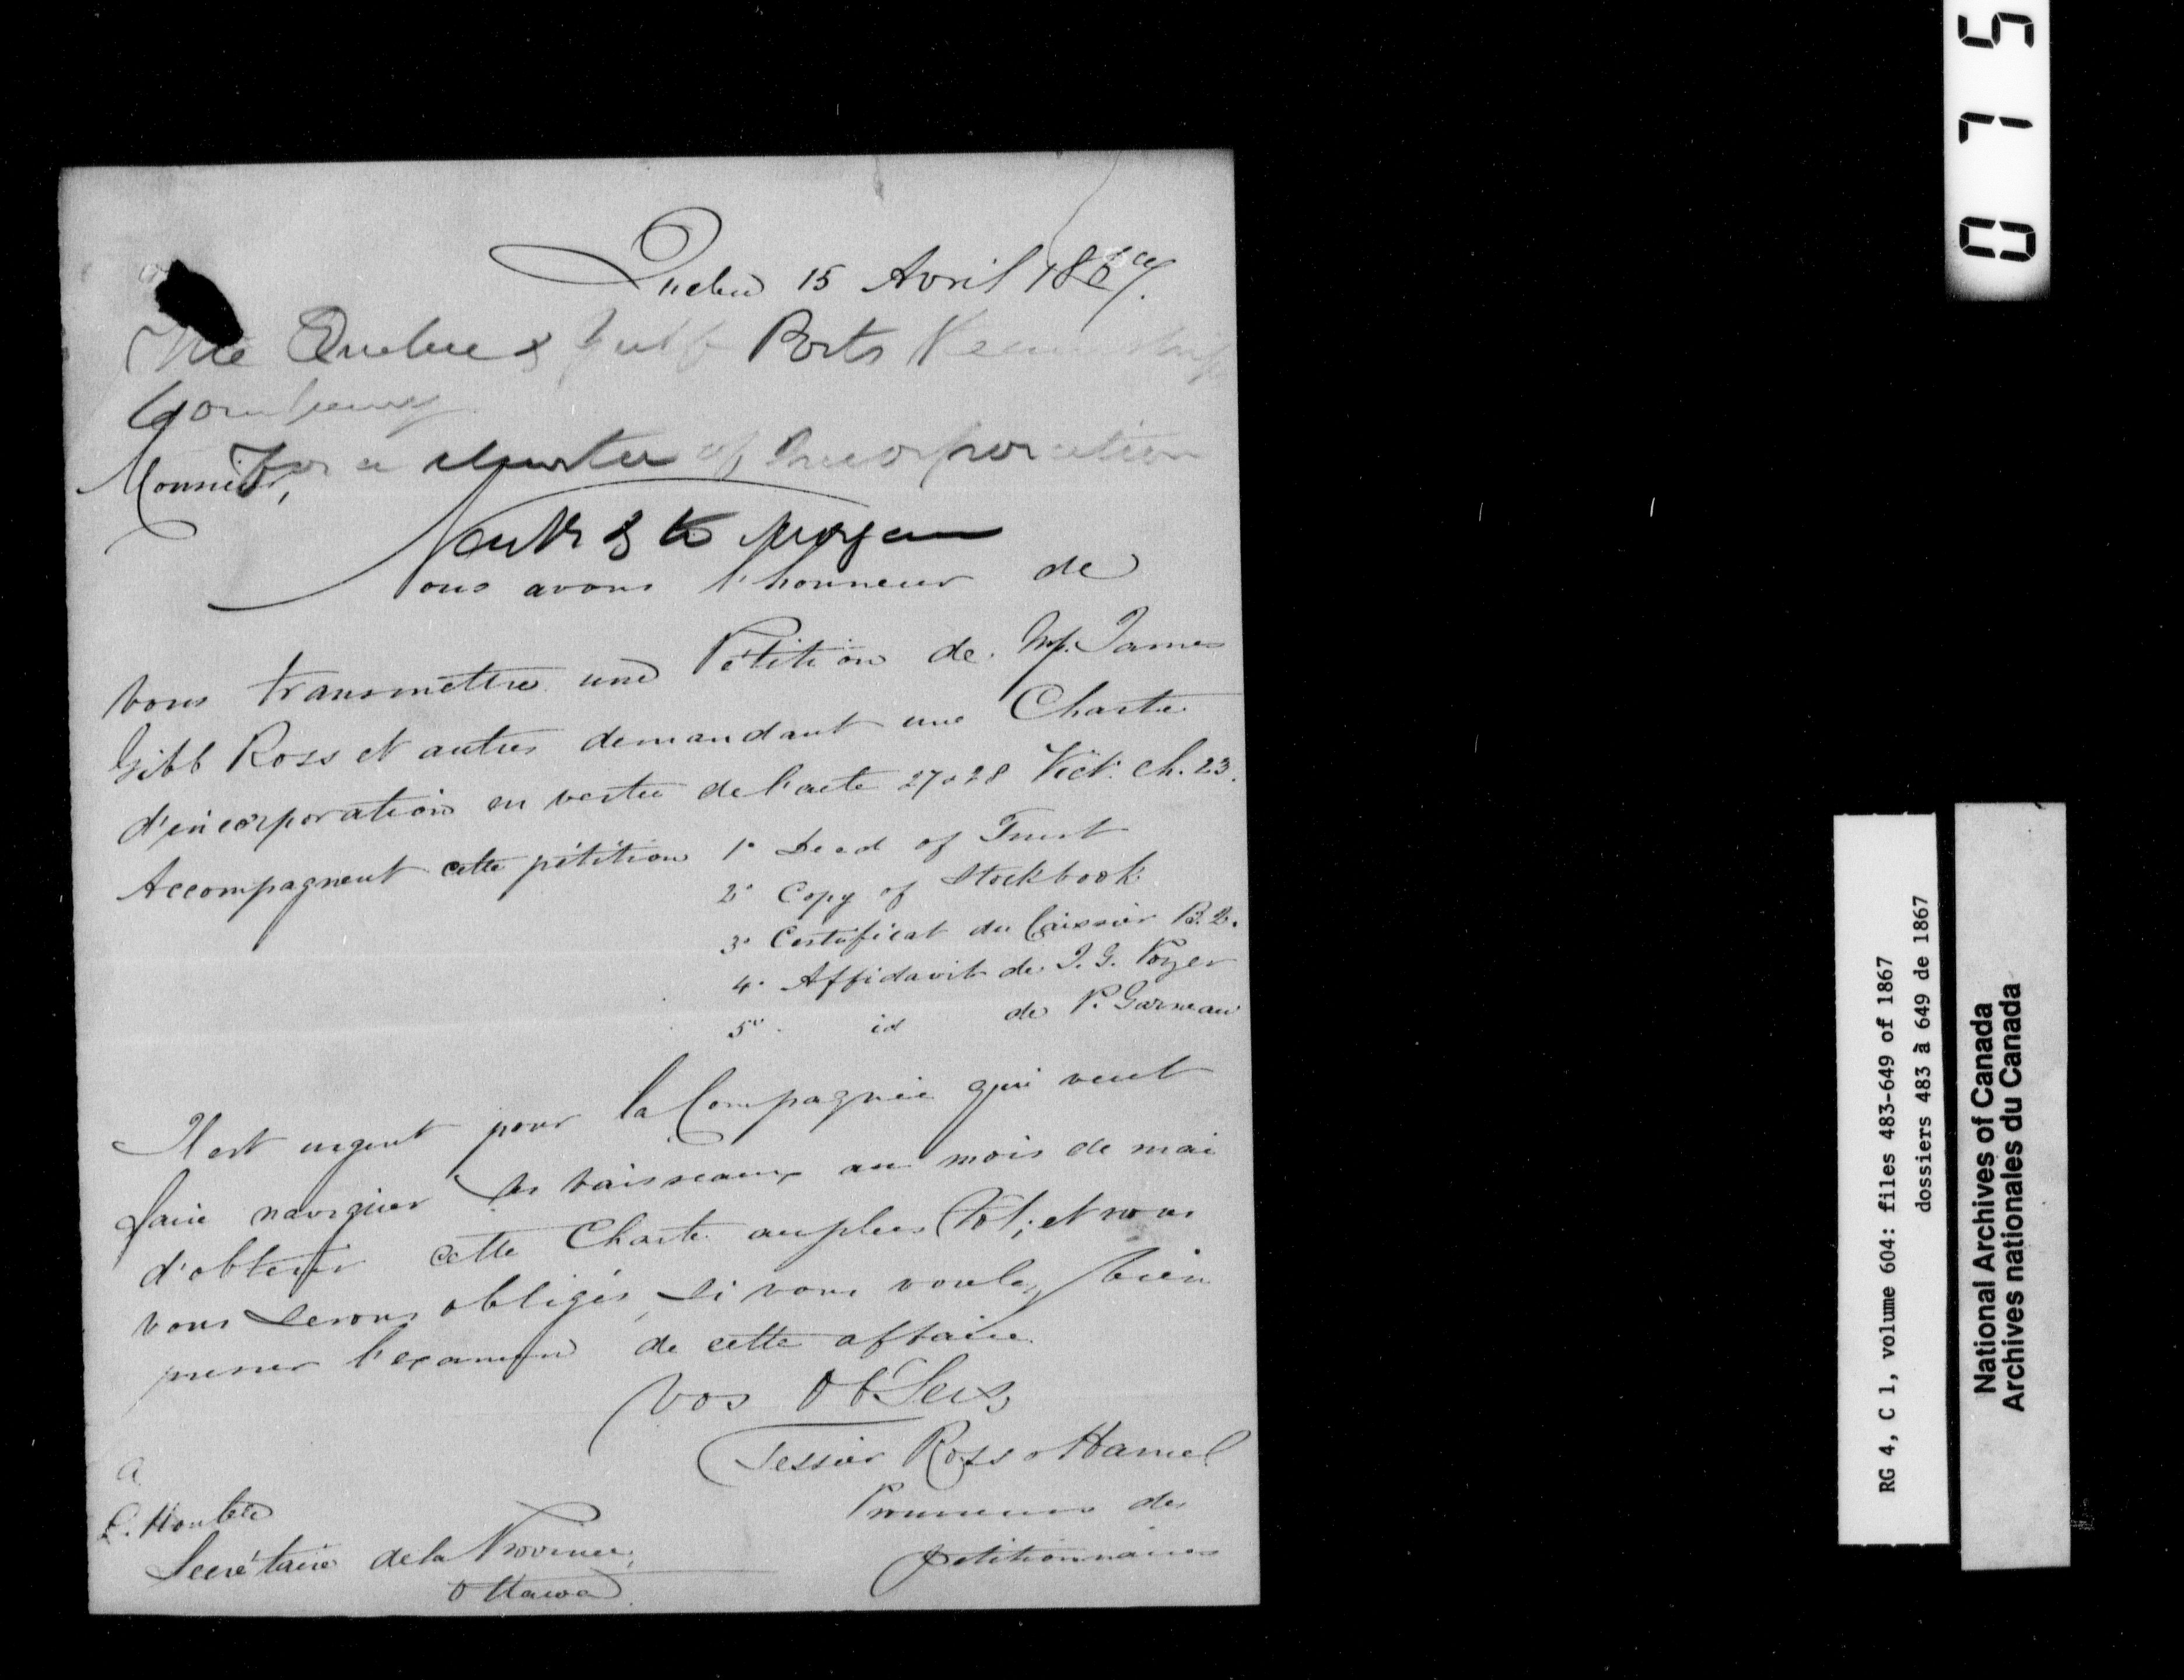 Quebec 15 Avril 1867.
The Quebec & Gulf Ports Steam Ship
Company
For a charter of Incorporation
Monsieur,
Nous avons l'honneur de
vous transmettre une Pétition de Mr. James
Gibb Ross et autres demandant une Charte
d'incorporation en vertu de l'acte 27 & 28 Vict. ch. 23.
Accompagnent cette pétition 1° Deed of Trust
2° Copy of Stockbook
3° Certificat du Caissier B. Q.
4° Affidavit de J. G. Voyer
5° id de P. Garneau
Il est urgent pour la Compagnie qui veut
faire naviguer ses vaisseaux au mois de mai
d'obtenir cette Charte au plus tôt; et nous
vous serons obligés, si vous voulez bien
presser l'examen de cette affaire.
Vos Ob Sers
Tessier Ross & Hamel
Procureurs des
petitionnaires
A
L'Honble
Secrétaire de la Province,
Ottawa
0 7 5
RG 4, C 1, volume 604: files 483-649 of 1867
dossiers 483 à 649 de 1867
National Archives of Canada
Archives nationales du Canada